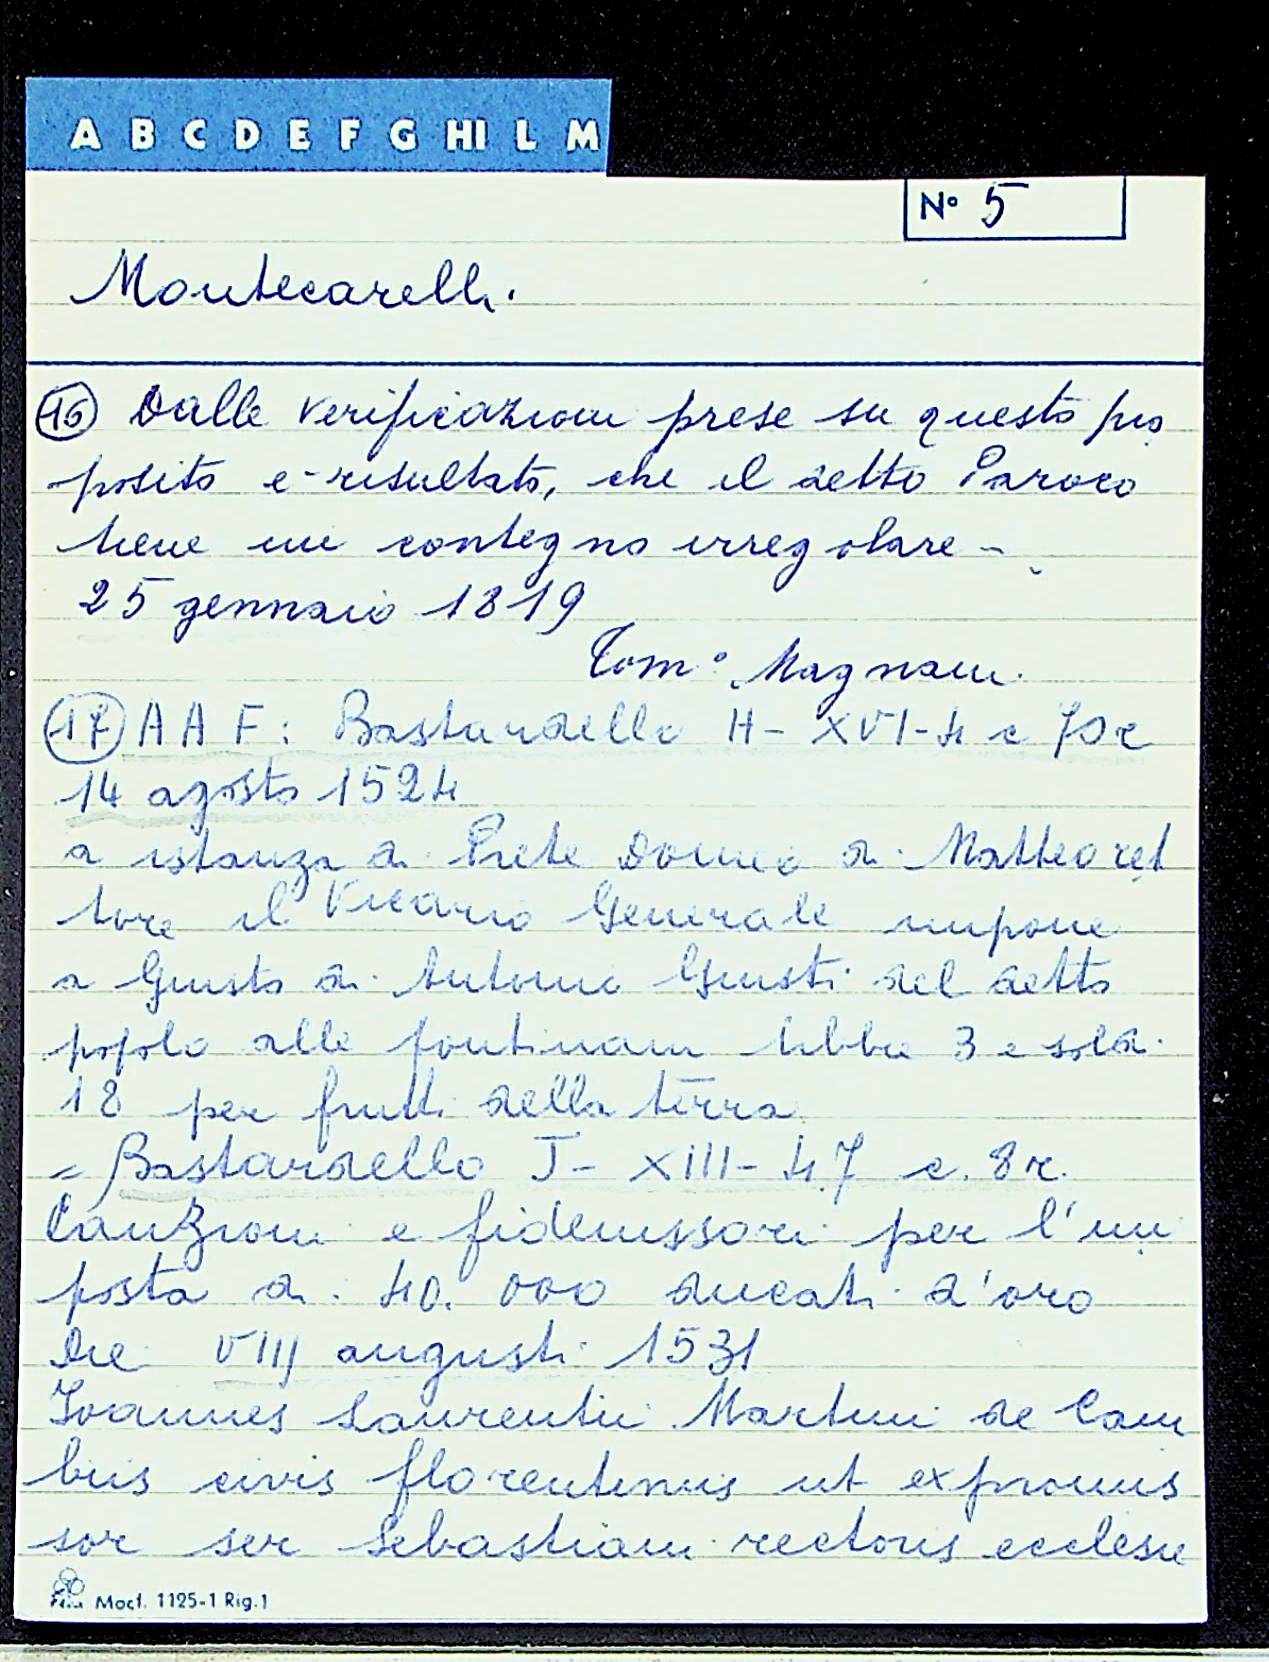 A B C D E F G HI L M
N° 5
Montecarelli.
16 Dalle verificazioni prese su questo pro
posito e risultato, che il detto Paroco
tiene un contegno irregolare -
25 gennaio 1819
Tom° Magnani.
17 A A F: Bastardello H - XVI - 4 c 70 r
14 agosto 1524
a istanza di Prete Domco di Matteo ret
tore il Vicario Generale impone
a Giusto di Antonio Giusti del detto
popolo alle fontinani libbre 3 e soldi
18 per frutti della terra
= Bastardello J - XIII - 47 c. 8r.
Cauzioni e fideiussori per l'im
posta di 40.000 ducati d'oro
Die VIII augusti 1531
Joannes Laurentii Martini de Cam
biis civis florentinus ut expromis
sor ser Sebastiani rectoris ecclesie
Mod. 1125-1 Rig.1